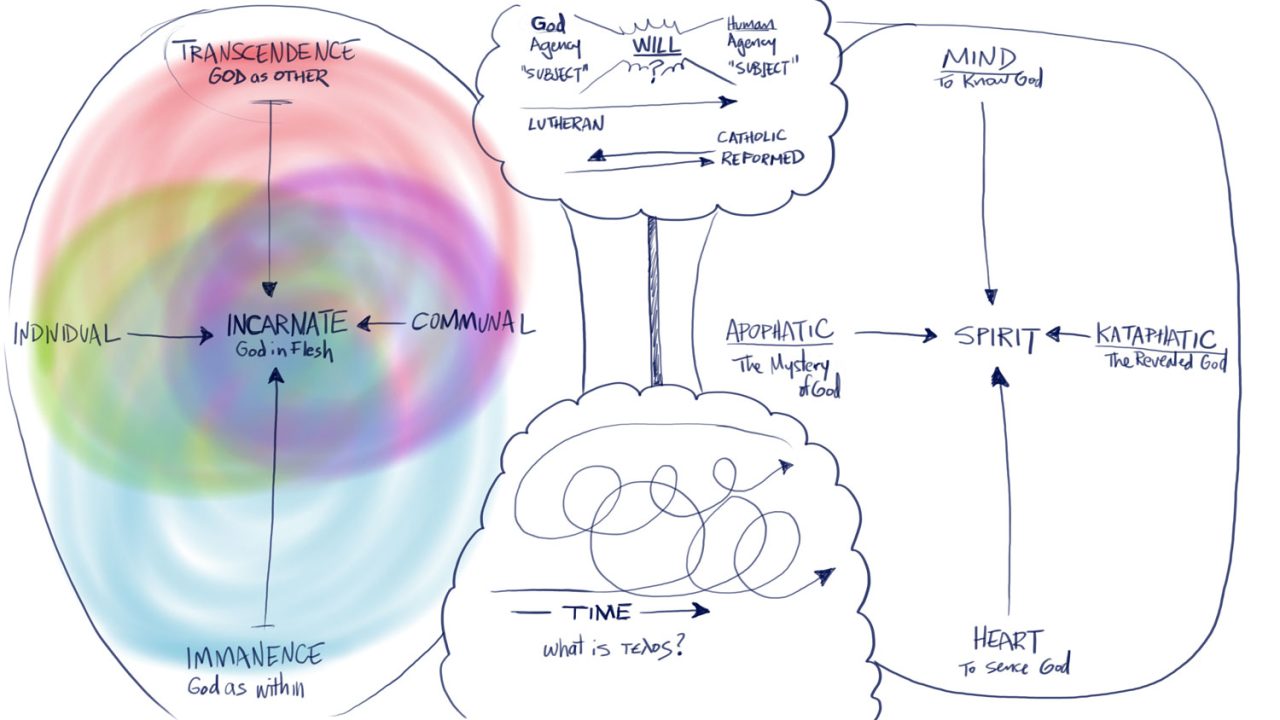 TRANSCENDENCE
GOD as OTHER
INDIVIDUAL
INCARNATE
God in Flesh
COMMUNAL
IMMANENCE
God as within
God
Agency
"SUBJECT"
WILL
?
Human
Agency
"SUBJECT"
LUTHERAN
CATHOLIC
REFORMED
TIME
what is τελos?
MIND
To Know God
APOPHATIC
The Mystery
of God
SPIRIT
KATAPHATIC
The Revealed God
HEART
To sence God